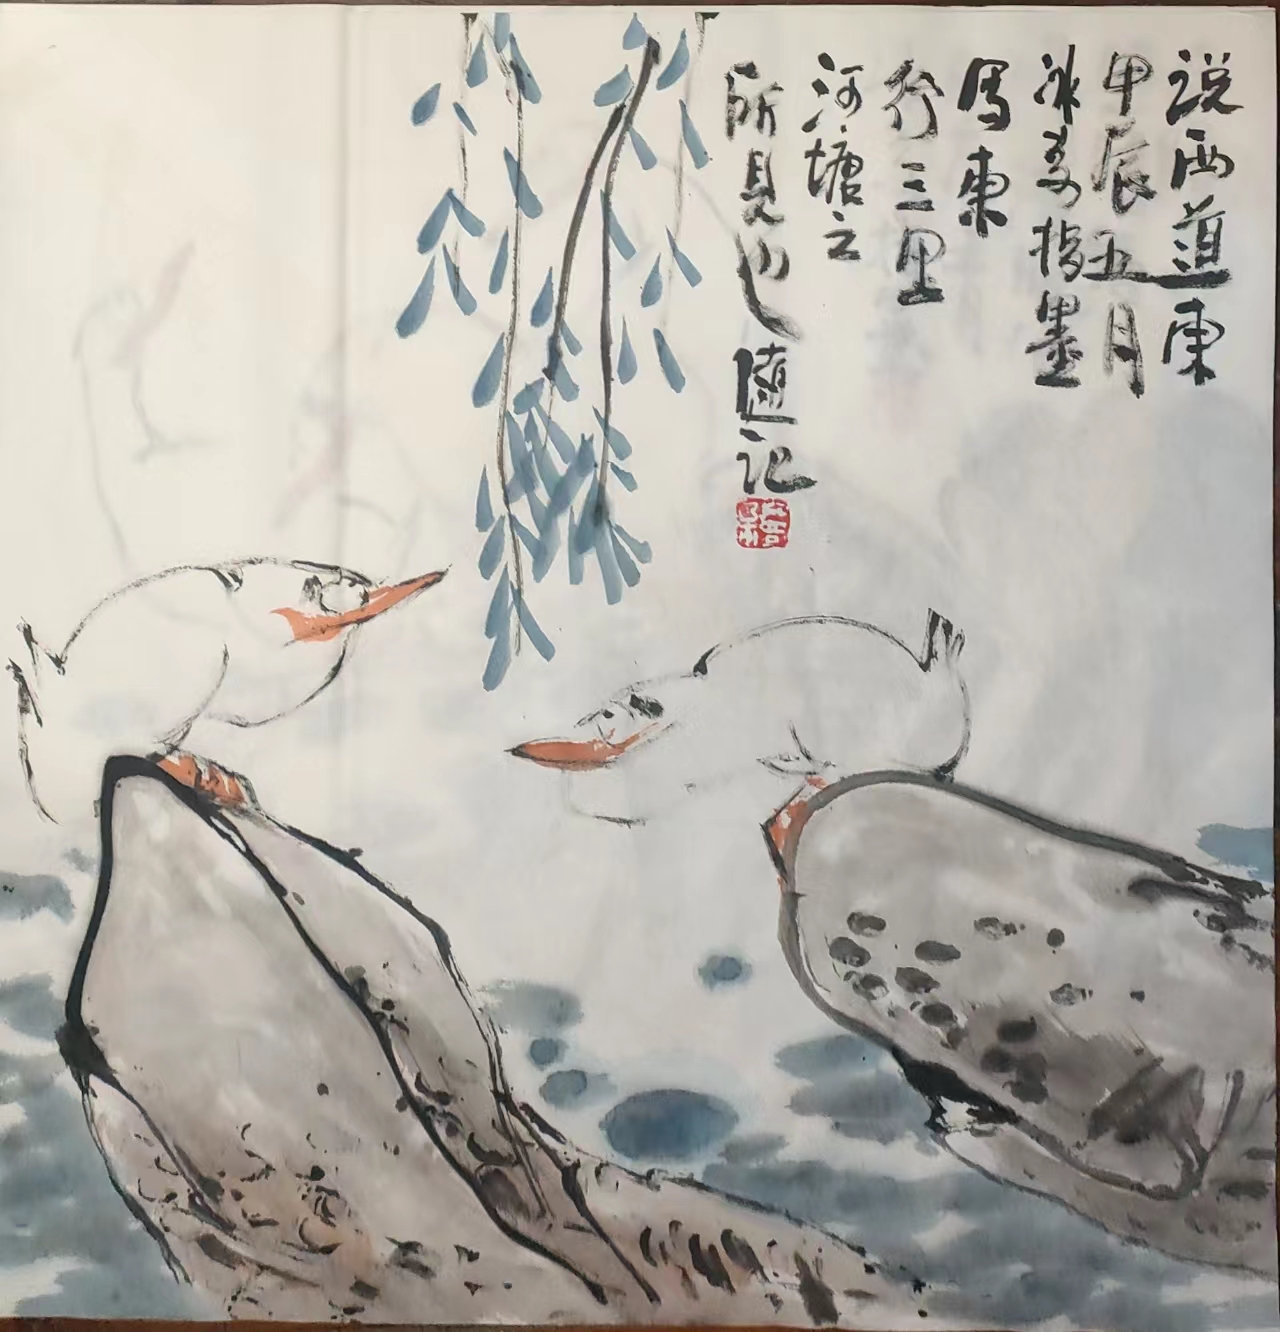 说西道东
甲辰五月
冰葑指墨
写东
行三里
河塘之
所见也随记